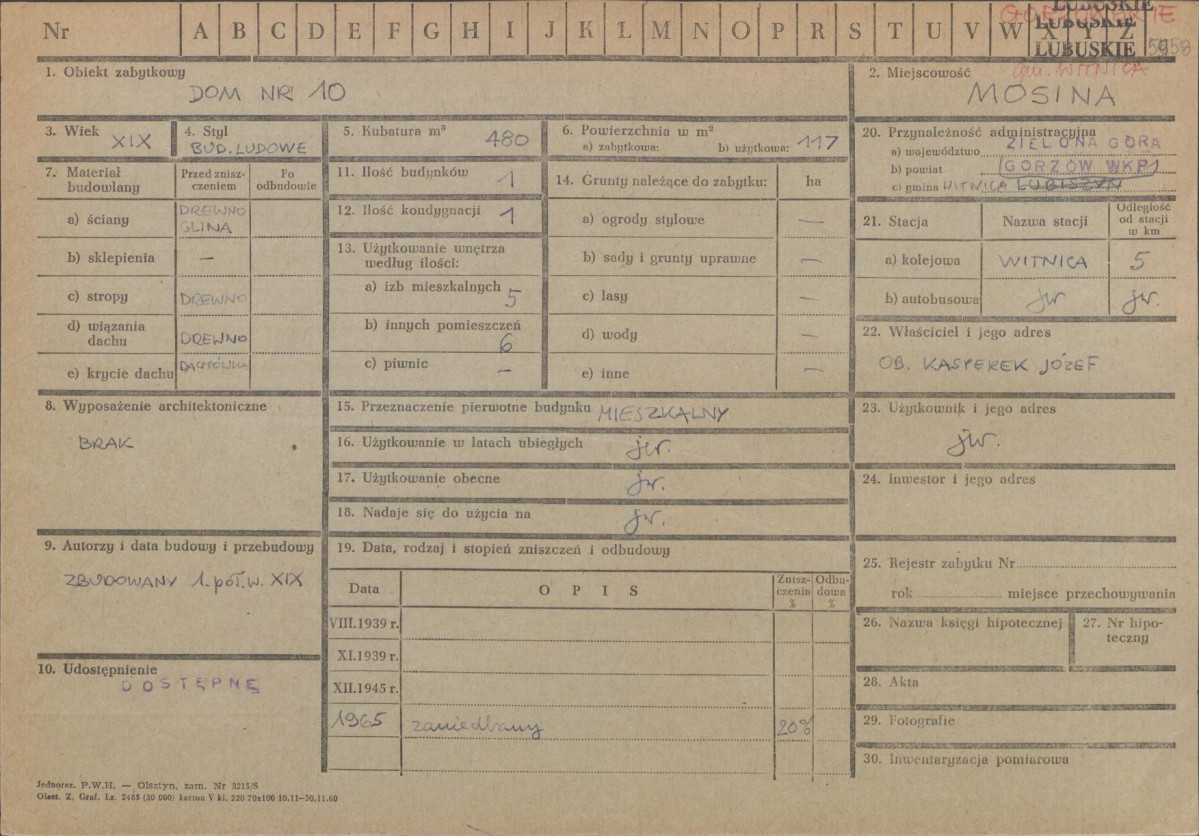 Nr A B C D E F G H I J K L M N O P R S T U V W X Y Z
LUBUSKIE
LUBUSKIE
LUBUSKIE
gm. WITNICA
1. Obiekt zabytkowy
DOM NR 10
2. Miejscowość
MOSINA
3. Wiek
XIX
4. Styl
BUD. LUDOWE
5. Kubatura m³
480
6. Powierzchnia w m²
a) zabytkowa: b) użytkowa: 117
7. Materiał budowlany
Przed zniszczeniem
Po odbudowie
a) ściany DREWNO GLINA
b) sklepienia —
c) stropy DREWNO
d) wiązania dachu DREWNO
e) krycie dachu DACHÓWKA
8. Wyposażenie architektoniczne
BRAK
9. Autorzy i data budowy i przebudowy
ZBUDOWANY 1. poł. w. XIX
10. Udostępnienie
DOSTĘPNE
11. Ilość budynków 1
12. Ilość kondygnacji 1
13. Użytkowanie wnętrza według ilości:
a) izb mieszkalnych 5
b) innych pomieszczeń 6
c) piwnic —
14. Grunty należące do zabytku: ha
a) ogrody stylowe —
b) sady i grunty uprawne —
c) lasy —
d) wody —
e) inne —
15. Przeznaczenie pierwotne budynku MIESZKALNY
16. Użytkowanie w latach ubiegłych jw.
17. Użytkowanie obecne jw.
18. Nadaje się do użycia na jw.
19. Data, rodzaj i stopień zniszczeń i odbudowy
Data OPIS Zniszczenia % Odbudowa %
VIII.1939 r.
XI.1939 r.
XII.1945 r.
1965 zaniedbany 20%
20. Przynależność administracyjna
a) województwo ZIELONA GÓRA
b) powiat GORZÓW WKP.
c) gmina WITNICA LUBISZYN
21. Stacja Nazwa stacji Odległość od stacji w km
a) kolejowa WITNICA 5
b) autobusowa jw jw.
22. Właściciel i jego adres
OB. KASPEREK JÓZEF
23. Użytkownik i jego adres
jw.
24. Inwestor i jego adres
25. Rejestr zabytku Nr
rok miejsce przechowywania
26. Nazwa księgi hipotecznej
27. Nr hipoteczny
28. Akta
29. Fotografie
30. Inwentaryzacja pomiarowa
Jednoraz. P.W.H. — Olsztyn, zam. Nr 2215/S
Olszt. Z. Graf. Lz. 2463 (30 000) karton V kl. 220 70x100 10.11—30.11.60